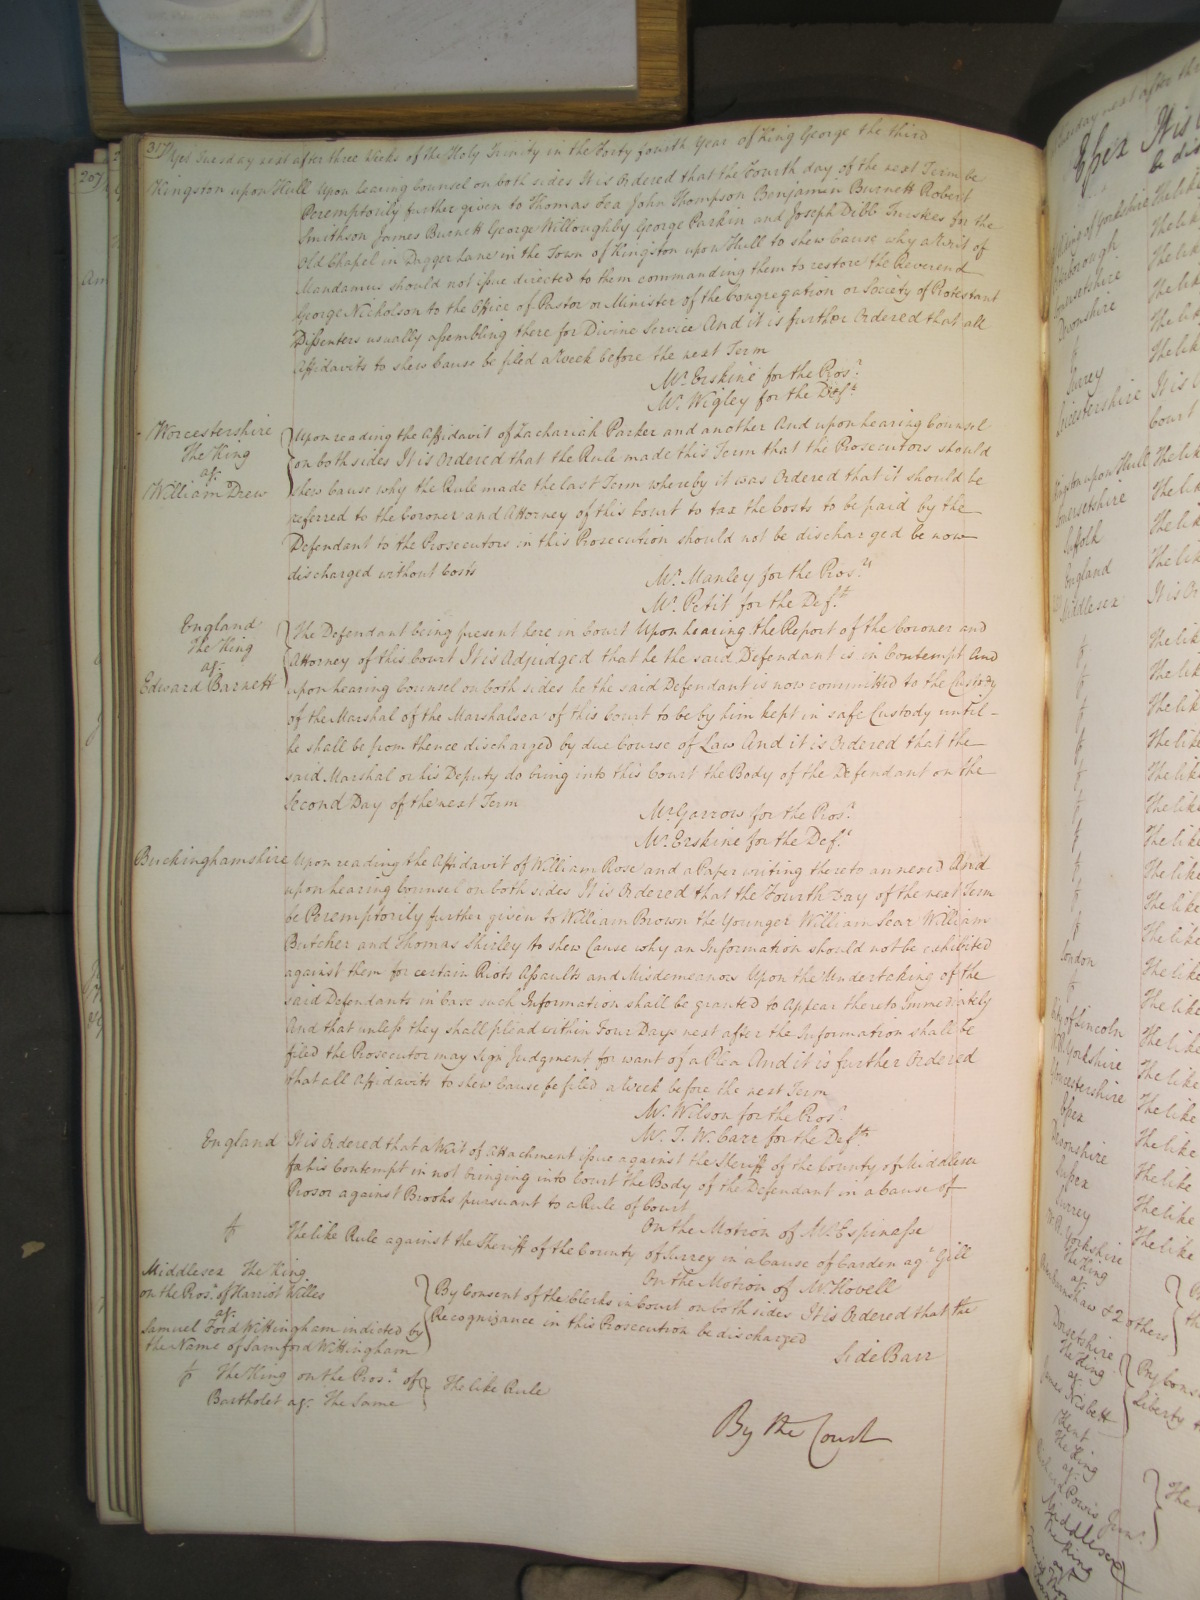 317
Yet Tuesday next after three Weeks of the Holy Trinity in the Forty fourth Year of King George the third
Kingston upon Hull Upon hearing Counsel on both sides It is Ordered that the Fourth day of the next Term be
Peremptorily further given to Thomas Lea John Thompson Benjamin Burnett Robert
Smithson James Burnett George Willoughby George Parkin and Joseph Dibb Trustees for the
Old Chapel in Dagger Lane in the Town of Kingston upon Hull to shew Cause why a Writ of
Mandamus should not issue directed to them commanding them to restore the Reverend
George Nicholson to the Office of Pastor or Minister of the Congregation or Society of Protestant
Dissenters usually assembling there for Divine Service And it is further Ordered that all
Affidavits to shew Cause be filed a Week before the next Term
Mr. Erskine for the Pros.r
Mr. Wigley for the Def.ts
Worcestershire
The King
ag.t
William Drew
Upon reading the Affidavit of Zachariah Parker and another And upon hearing Counsel
on both sides It is Ordered that the Rule made this Term that the Prosecutors should
shew Cause why the Rule made the last Term whereby it was Ordered that it should be
referred to the Coroner and Attorney of this Court to tax the Costs to be paid by the
Defendant to the Prosecutors in this Prosecution should not be discharged be now
discharged without Costs
Mr. Manley for the Pros.rs
Mr. Petit for the Def.t
England
The King
ag.t
Edward Barnett
The Defendant being present here in Court Upon hearing the Report of the Coroner and
Attorney of this Court It is Adjudged that he the said Defendant is in Contempt And
upon hearing Counsel on both sides he the said Defendant is now committed to the Custody
of the Marshal of the Marshalsea of this Court to be by him kept in safe Custody until
he shall be from thence discharged by due Course of Law And it is Ordered that the
said Marshal or his Deputy do bring into this Court the Body of the Defendant on the
Second Day of the next Term
Mr. Garrow for the Pros.r
Mr. Erskine for the Def.t
Buckinghamshire Upon reading the Affidavit of William Rose and a Paper writing thereto annexed And
upon hearing Counsel on both sides It is Ordered that the Fourth Day of the next Term
be Peremptorily further given to William Brown the Younger William Sear William
Butcher and Thomas Shirley to shew Cause why an Information should not be exhibited
against them for certain Riots Assaults and Misdemeanors Upon the Undertaking of the
said Defendants in Case such Information shall be granted to Appear thereto Immediately
And that unless they shall plead within Four Days next after the Information shall be
filed the Prosecutor may sign Judgment for want of a Plea And it is further Ordered
that all Affidavits to shew Cause be filed a Week before the next Term
Mr. Wilson for the Pros.r
Mr. T. W. Carr for the Def.ts
England It is Ordered that a Writ of Attachment issue against the Sheriff of the County of Middlesex
for his Contempt in not bringing into Court the Body of the Defendant in a Cause of
Prosor against Brooks pursuant to a Rule of Court
On the Motion of Mr. Espinasse
The like Rule against the Sheriff of the County of Surrey in a Cause of Carden ag.t Gill
On the Motion of Mr. Hovell
Middlesex The King
on the Pros.n of Harriot Willes
ag.t
Samuel Ford Wittingham indicted by
the Name of Samford Wittingham
By Consent of the Clerks in Court on both sides It is Ordered that the
Recognizance in this Prosecution be discharged
Side Barr
The King on the Pros.n of
Bartholet ag.t The Same
The like Rule
By the Court
207
Essex
It is
be dis
Peterborough
Somersetshire
Devonshire
Surrey
Leicestershire
Kingston upon Hull
Somersetshire
Suffolk
England
Middlesex
London
City of Lincoln
Yorkshire
Essex
Devonshire
Sussex
Surrey
Yorkshire
The King
ag.t
& 2 others
Dorsetshire
The King
ag.t
James Nisbett
Kent
The King
ag.t
Powis Jun.r
Middlesex
The King
The like
The like
The like
The like
The like
The like
It is
Court
The like
The like
The like
The like
It is Or
The like
The like
The like
The like
The like
The like
The like
The like
The like
The like
The like
The like
The like
The like
The like
The like
The like
The like
The like
By Cons
Liberty
The